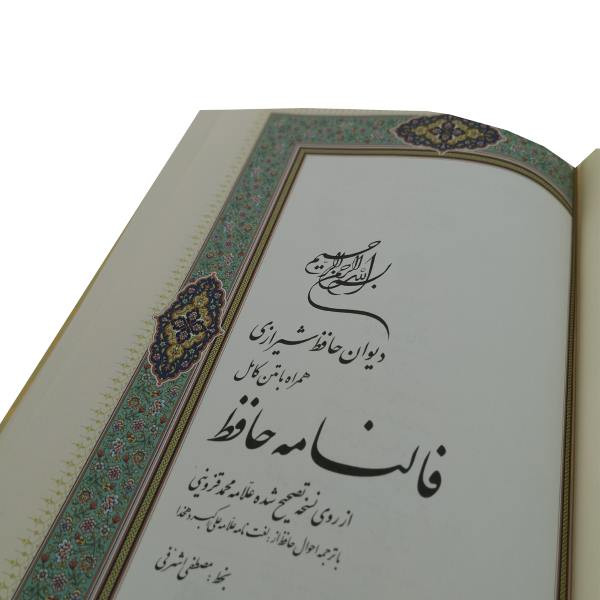 بسم الله الرحمن الرحیم
دیوان حافظ شیرازی
همراه با متن کامل
فالنامه حافظ
از روی نسخه تصحیح شده علامه محمد قزوینی
با ترجمه احوال حافظ از: لغت نامه علامه علی اکبر دهخدا
بخط: مصطفی اشرفی